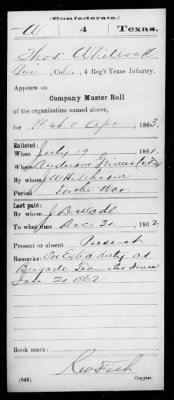 (Confederate.)
W 4 Texas.
Thos Whitlock
Co. , 4 Reg't Texas Infantry.
Appears on
Company Muster Roll
of the organization named above,
for Mch & Apr, 1863.
Enlisted:
When July 19, 1861.
Where Anderson Grimes Co Tx
By whom J W Hutcheson
Period For the War
Last paid:
By whom J. Burade
To what time Dec 31, 1862
Present or absent Present
Remarks: On Extra duty as
Brigade Teamster since
Jan 20 1862
Book mark:
(642) Copyist.